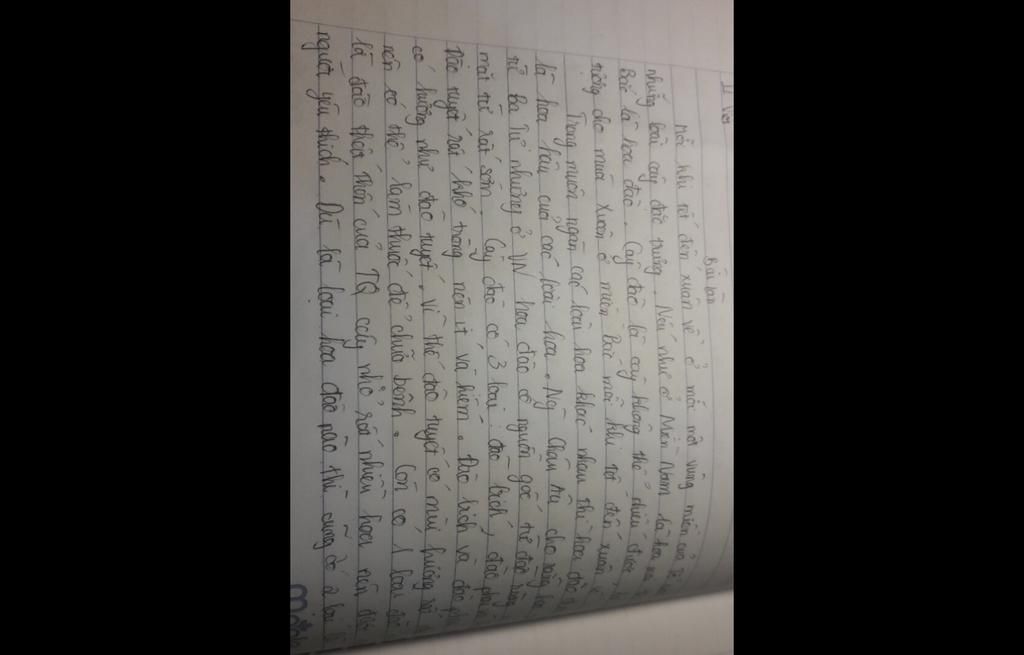 Bài làm
Mỗi khi tết đến xuân về ở mỗi một vùng miền của
những loài cây đặc trưng. Nếu như ở Miền Nam là hoa
Bắc là hoa đào. Cây đào là cây không thể thiếu được
trưng cho mùa xuân ở miền Bắc mỗi khi tết đến xuân
Trong muôn ngàn các loài hoa khác nhau thì hoa đào
là hoa hậu của các loài hoa. Ng châu Âu cho rằng hoa
từ Ba Tư nhưng ở VN hoa đào có nguồn gốc từ đào rừng
mãi từ rất sớm. Cây đào có 3 loại: đào bích, đào phai
Đào tuyết rất khó trồng nên ít và hiếm. Đào bích và đào
có hương như đào tuyết. Vì thế đào tuyết có mùi hương
nên có thể làm thuốc để chữa bệnh. Còn có 1 loại
là đào thất thốn của TQ cây nhỏ rất nhiều hoa nên
người yêu thích. Dù là loại hoa đào nào thì cũng có 2 loại